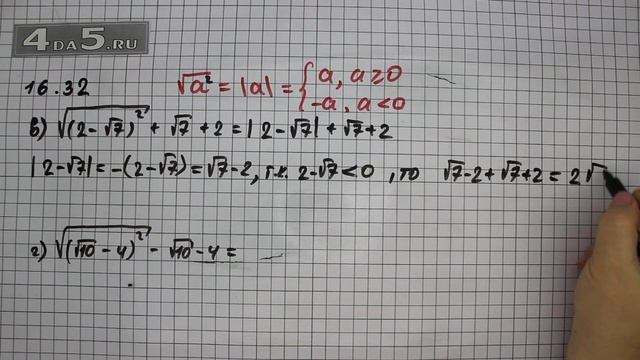 4DA5.RU
16.32
√a² = |a| = { a, a≥0
-a, a<0
в) √(2-√7)² + √7 + 2 = |2-√7| + √7+2
|2-√7| = -(2-√7) = √7-2, т.к. 2-√7<0, то √7-2+√7+2 = 2√
г) √(√10-4)² - √10-4 =